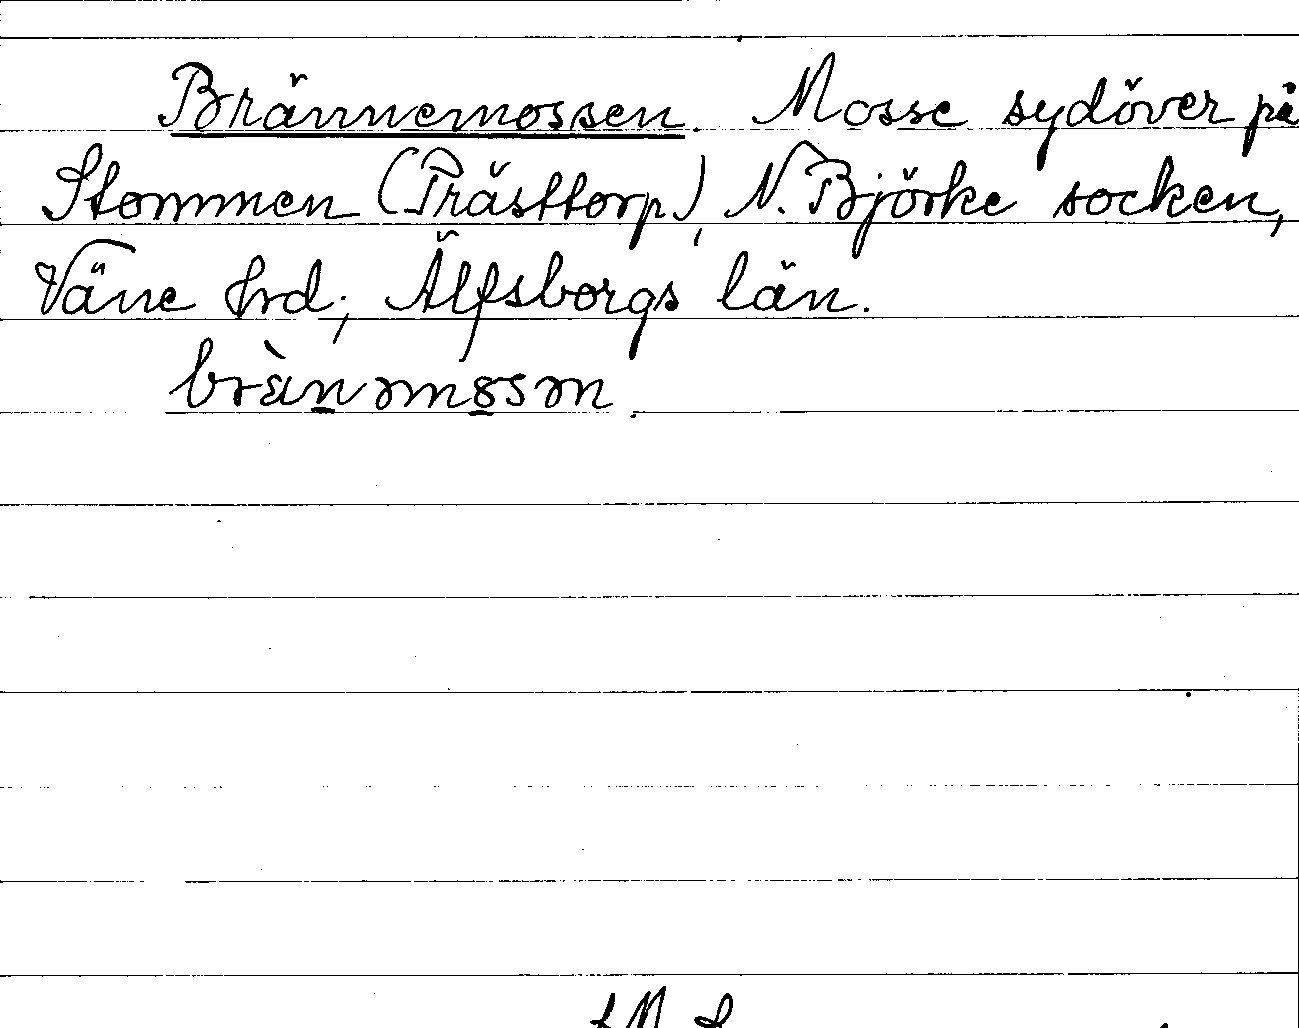 Brännemossen. Mosse sydöver på
Stommen (Prästtorp), N. Björke socken,
Väne hrd; Älfsborgs län.
brànəmosən.